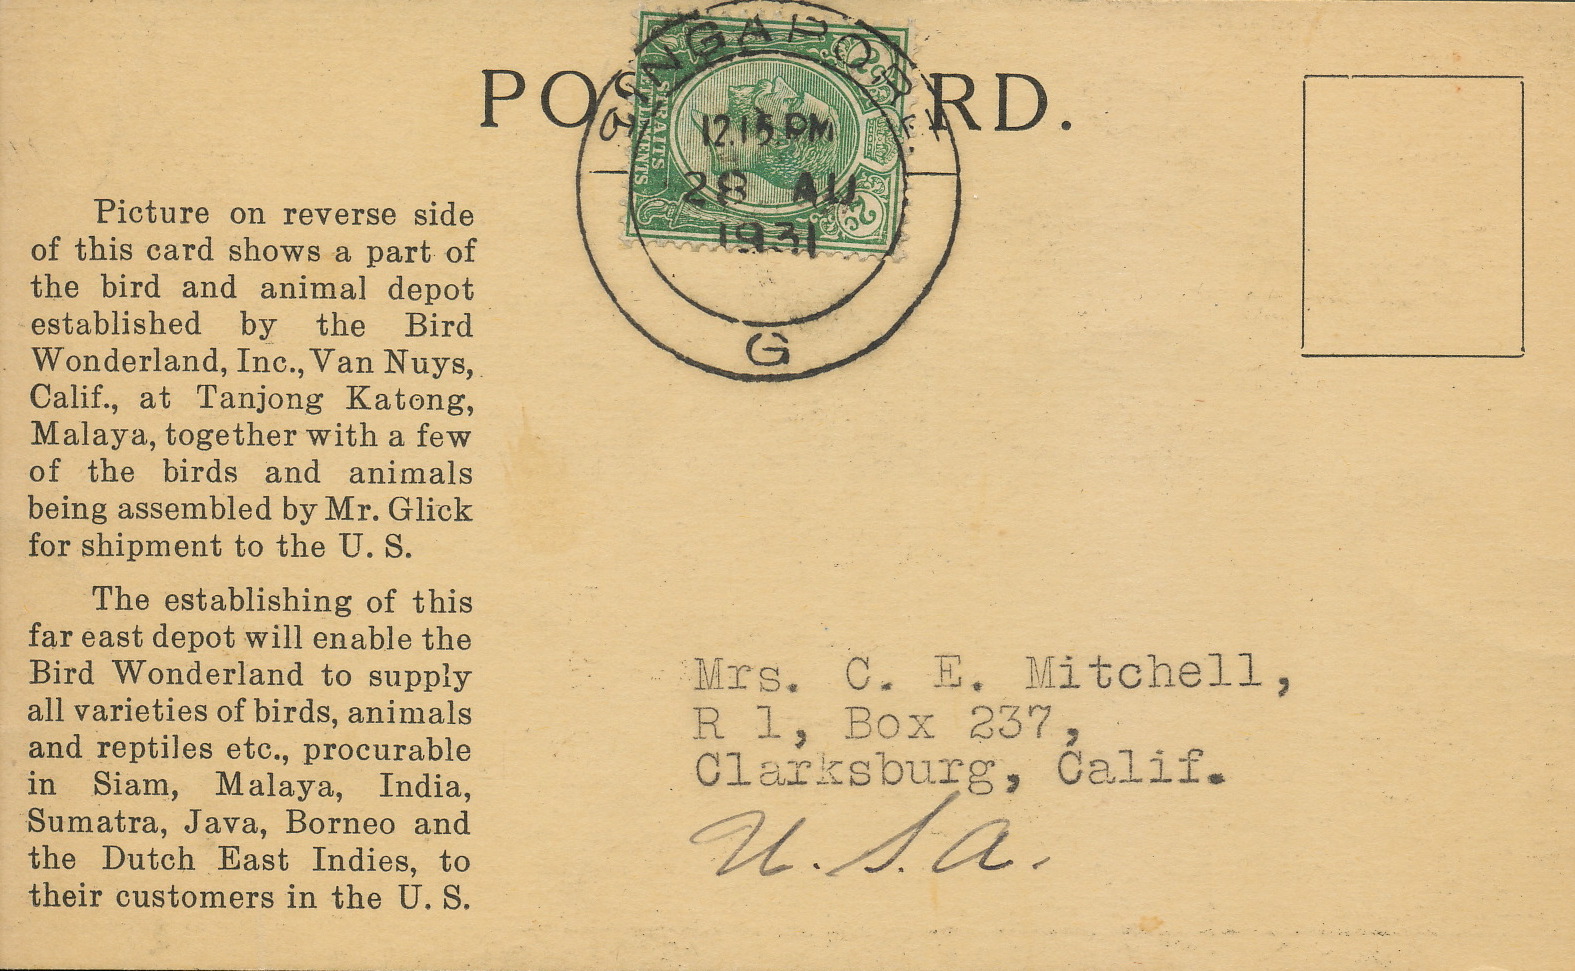 POS RD.
SINGAPORE.
12.15 PM
28 AU
1931
G
STRAITS
SETTLEMENTS
2c
2c
Picture on reverse side
of this card shows a part of
the bird and animal depot
established by the Bird
Wonderland, Inc., Van Nuys,
Calif., at Tanjong Katong,
Malaya, together with a few
of the birds and animals
being assembled by Mr. Glick
for shipment to the U. S.
The establishing of this
far east depot will enable the
Bird Wonderland to supply
all varieties of birds, animals
and reptiles etc., procurable
in Siam, Malaya, India,
Sumatra, Java, Borneo and
the Dutch East Indies, to
their customers in the U. S.
Mrs. C. E. Mitchell,
R 1, Box 237,
Clarksburg, Calif.
U.S.A.